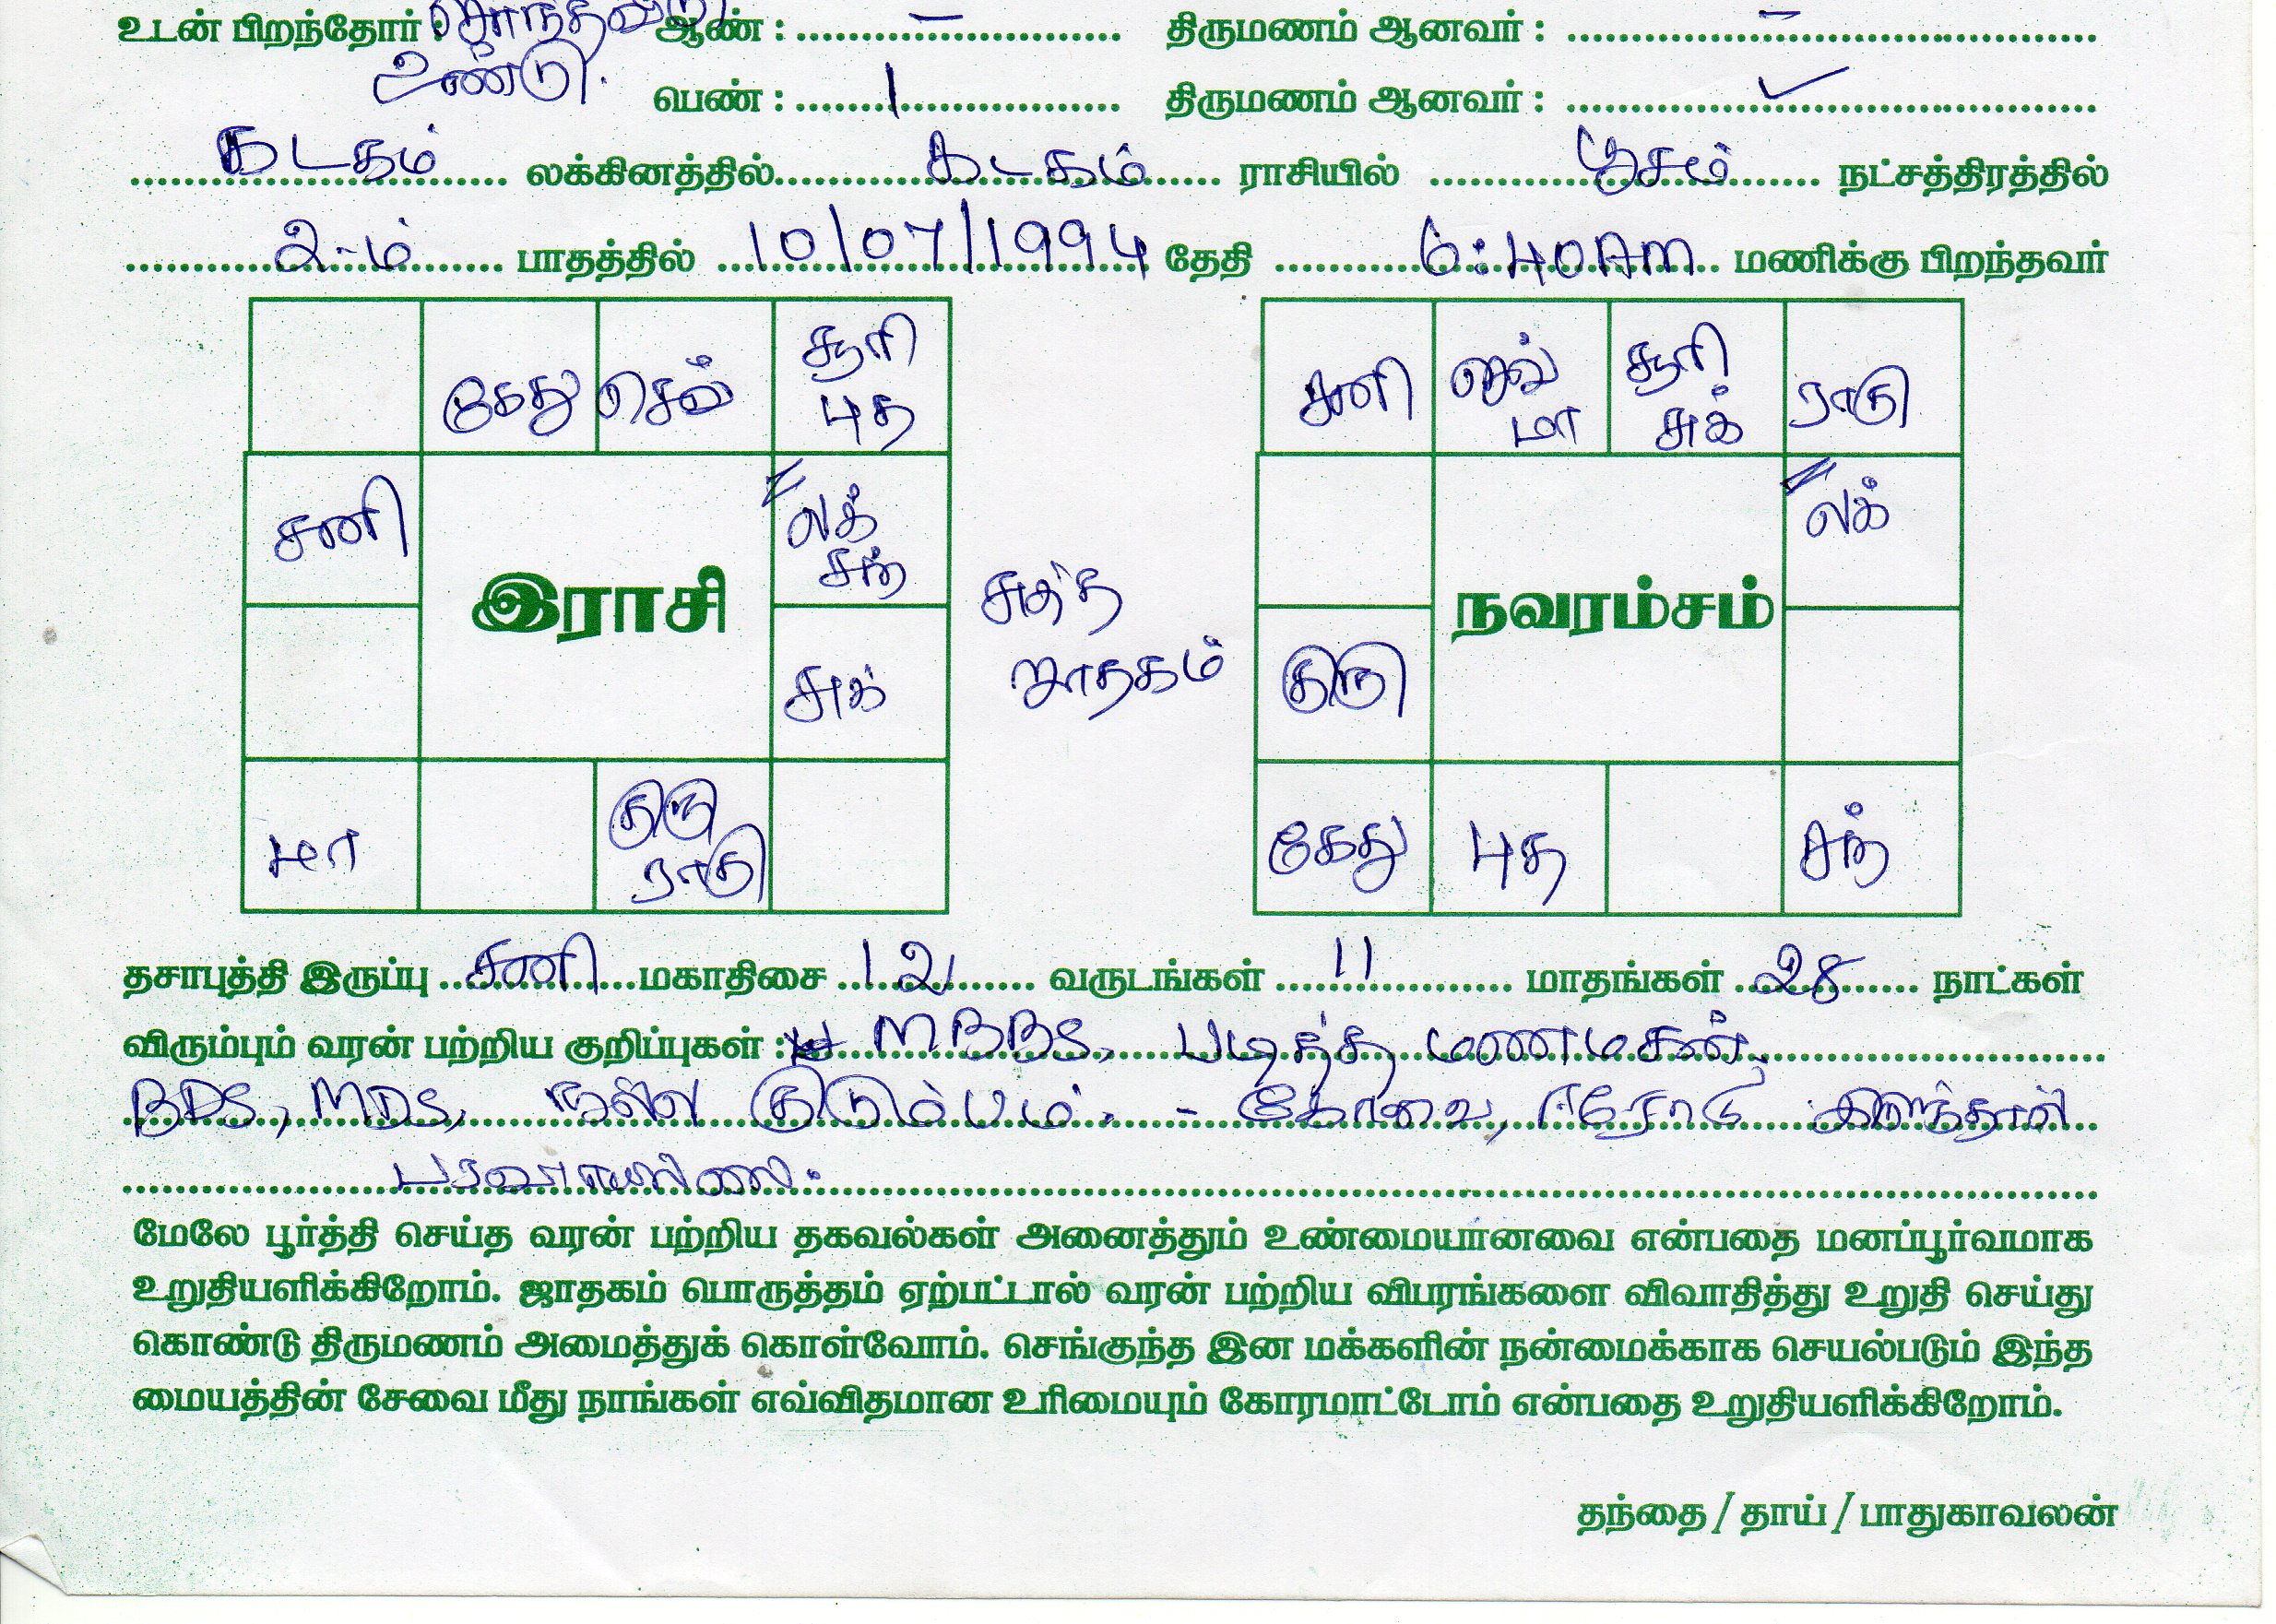 உடன் பிறந்தோர் : ஆண் : – திருமணம் ஆனவர் : –
உண்டு. பெண் : 1 திருமணம் ஆனவர் : ✓
கடகம் லக்கினத்தில் கடகம் ராசியில் பூசம் நட்சத்திரத்தில்
2-ம் பாதத்தில் 10/07/1994 தேதி 6:40AM மணிக்கு பிறந்தவர்
கேது செவ் சூரி
புத
சனி லக்
சந்
இராசி
சுக்
மா குரு
ராகு
சுத்த
ஜாதகம்
சனி செவ்
மா சூரி
சுக் ராகு
லக்
நவரம்சம்
குரு
கேது புத சந்
தசாபுத்தி இருப்பு சனி மகாதிசை 12 வருடங்கள் 11 மாதங்கள் 28 நாட்கள்
விரும்பும் வரன் பற்றிய குறிப்புகள் : MBBS, படித்த மணமகன்,
BDS, MDS, நல்ல குடும்பம். - கோவை, ஈரோடு இருந்தால்
பரவாயில்லை.
மேலே பூர்த்தி செய்த வரன் பற்றிய தகவல்கள் அனைத்தும் உண்மையானவை என்பதை மனப்பூர்வமாக
உறுதியளிக்கிறோம். ஜாதகம் பொருத்தம் ஏற்பட்டால் வரன் பற்றிய விபரங்களை விவாதித்து உறுதி செய்து
கொண்டு திருமணம் அமைத்துக் கொள்வோம். செங்குந்த இன மக்களின் நன்மைக்காக செயல்படும் இந்த
மையத்தின் சேவை மீது நாங்கள் எவ்விதமான உரிமையும் கோரமாட்டோம் என்பதை உறுதியளிக்கிறோம்.
தந்தை / தாய் / பாதுகாவலன்